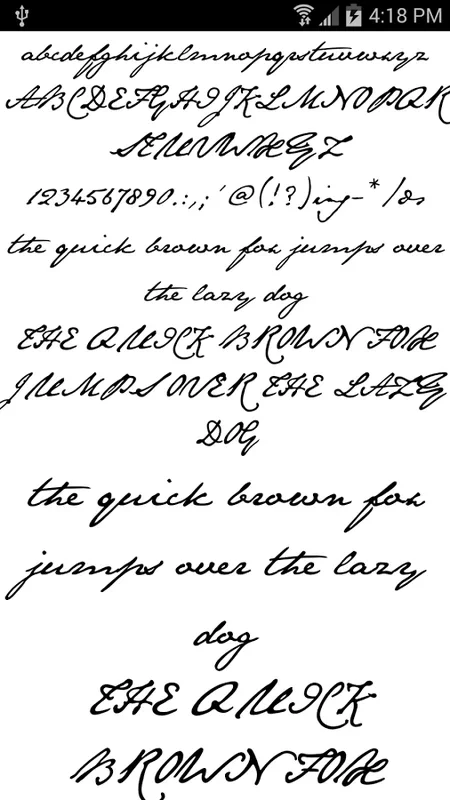 4:18 PM
abcdefghijklmnopqrstuvwxyz
ABCDEFGHIJKLMNOPQR
STUVWXYZ
1234567890.:,;'@(!?)ing-*/as
the quick brown fox jumps over
the lazy dog
THE QUICK BROWN FOX
JUMPS OVER THE LAZY
DOG
the quick brown fox
jumps over the lazy
dog
THE QUICK
BROWN FOX